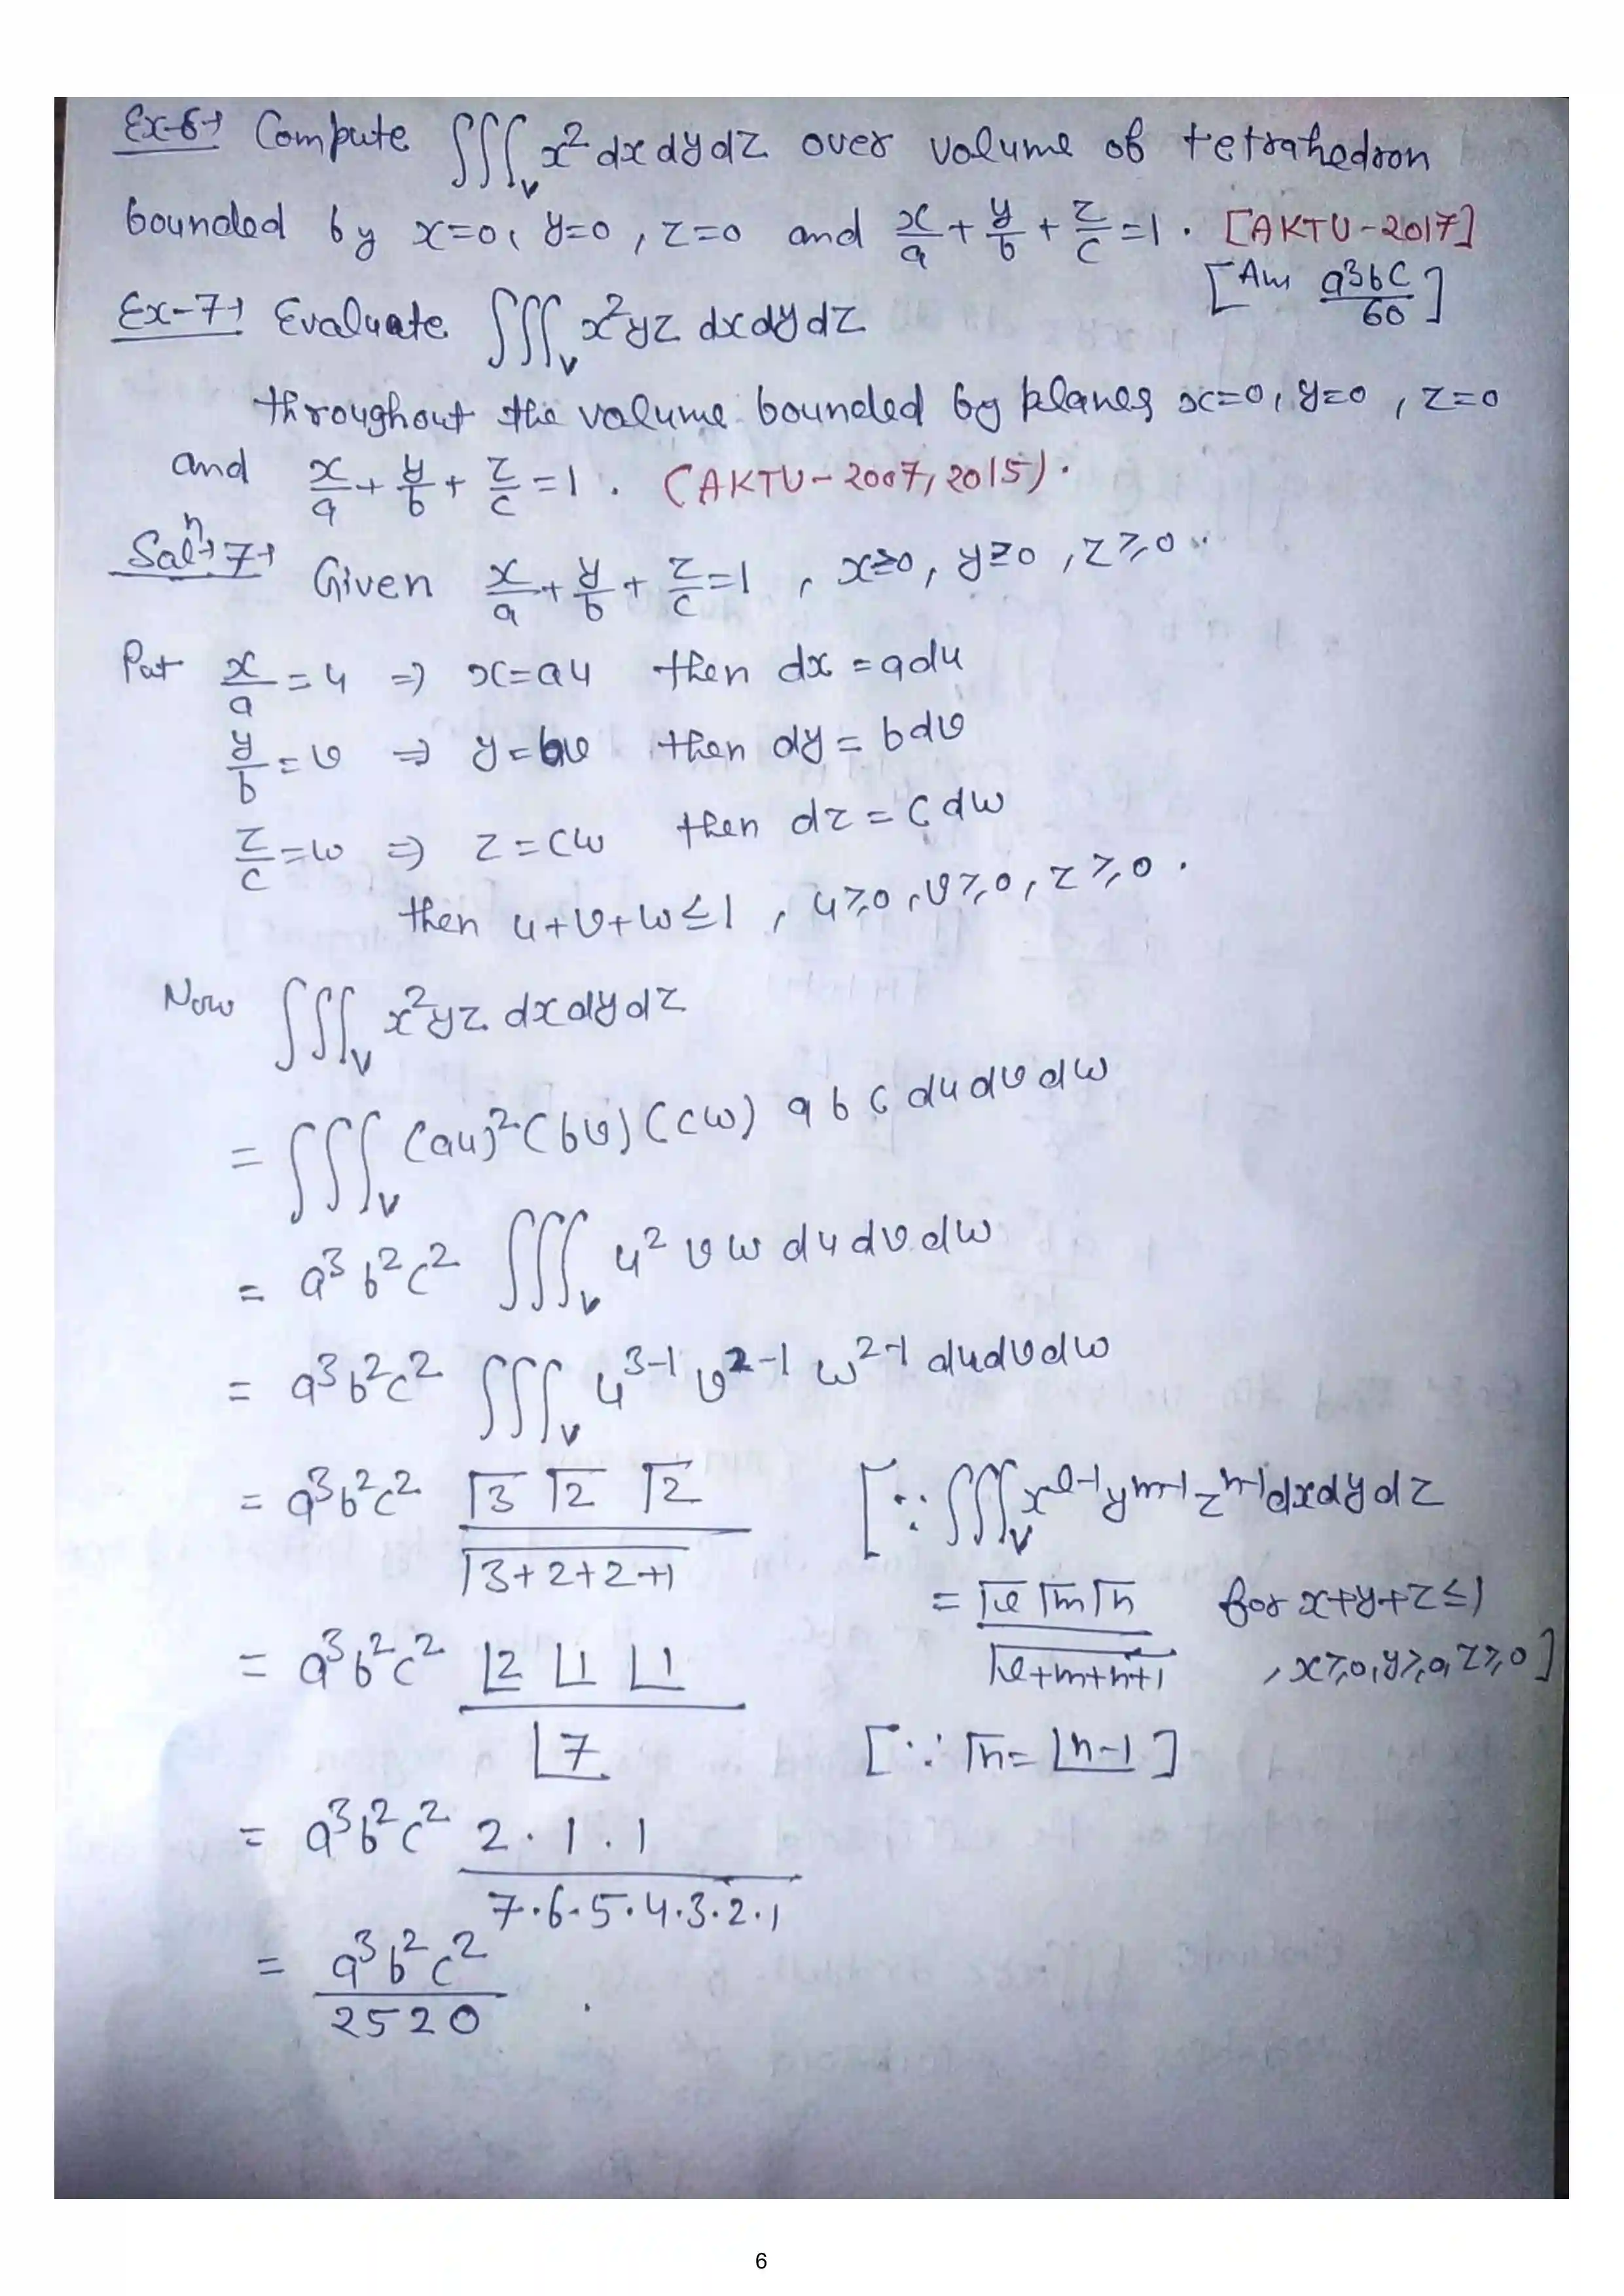 Ex-6→ Compute ∭_V x² dx dy dz over volume of tetrahedron
bounded by x=0, y=0, z=0 and x/a + y/b + z/c = 1. [AKTU-2017]
[Ans a³bc/60]
Ex-7→ Evaluate ∭_V x²yz dx dy dz
throughout the volume bounded by planes x=0, y=0, z=0
and x/a + y/b + z/c = 1. (AKTU-2007, 2015).
Solⁿ→7→ Given x/a + y/b + z/c = 1, x≥0, y≥0, z≥0.
Put x/a = u ⇒ x=au then dx = adu
y/b = v ⇒ y=bv then dy = bdv
z/c = w ⇒ z=cw then dz = cdw
then u+v+w≤1, u≥0, v≥0, z≥0.
Now ∭_V x²yz dx dy dz
= ∭_V (au)²(bv)(cw) abc du dv dw
= a³b²c² ∭_V u² v w du dv dw
= a³b²c² ∭_V u^(3-1) v^(2-1) w^(2-1) du dv dw
= a³b²c² Γ3 Γ2 Γ2 / Γ3+2+2+1 [∵ ∭_V x^(l-1) y^(m-1) z^(n-1) dx dy dz
= Γl Γm Γn / Γl+m+n+1 for x+y+z≤1
, x≥0, y≥0, z≥0]
= a³b²c² ⌊2 ⌊1 ⌊1 / ⌊7 [∵ Γn = ⌊n-1]
= a³b²c² 2·1·1 / 7·6·5·4·3·2·1
= a³b²c² / 2520 .
6